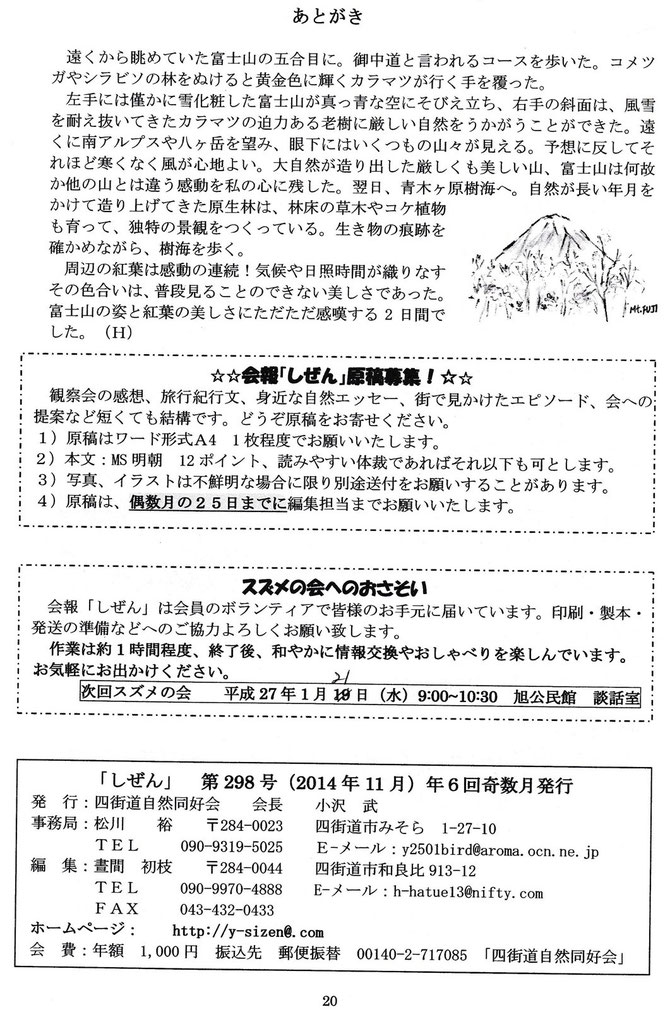 あとがき
遠くから眺めていた富士山の五合目に。御中道と言われるコースを歩いた。コメツ
ガやシラビソの林をぬけると黄金色に輝くカラマツが行く手を覆った。
左手には僅かに雪化粧した富士山が真っ青な空にそびえ立ち、右手の斜面は、風雪
を耐え抜いてきたカラマツの迫力ある老樹に厳しい自然をうかがうことができた。遠
くに南アルプスや八ヶ岳を望み、眼下にはいくつもの山々が見える。予想に反してそ
れほど寒くなく風が心地よい。大自然が造り出した厳しくも美しい山、富士山は何故
か他の山とは違う感動を私の心に残した。翌日、青木ヶ原樹海へ。自然が長い年月を
かけて造り上げてきた原生林は、林床の草木やコケ植物
も育って、独特の景観をつくっている。生き物の痕跡を
確かめながら、樹海を歩く。
周辺の紅葉は感動の連続！気候や日照時間が織りなす
その色合いは、普段見ることのできない美しさであった。
富士山の姿と紅葉の美しさにただただ感嘆する２日間で
した。（H）
Mt.FUJI
☆☆会報「しぜん」原稿募集！☆☆
観察会の感想、旅行紀行文、身近な自然エッセー、街で見かけたエピソード、会への
提案など短くても結構です。どうぞ原稿をお寄せください。
１）原稿はワード形式A４ １枚程度でお願いいたします。
２）本文：MS 明朝 12ポイント、読みやすい体裁であればそれ以下も可とします。
３）写真、イラストは不鮮明な場合に限り別途送付をお願いすることがあります。
４）原稿は、偶数月の２５日までに編集担当までお願いいたします。
スズメの会へのおさそい
会報「しぜん」は会員のボランティアで皆様のお手元に届いています。印刷・製本・
発送の準備などへのご協力よろしくお願い致します。
作業は約１時間程度、終了後、和やかに情報交換やおしゃべりを楽しんでいます。
お気軽にお出かけください。
次回スズメの会 平成 27 年 1 月 21 日（水）9:00~10:30 旭公民館 談話室
「しぜん」 第 298 号（2014 年 11 月）年６回奇数月発行
発 行：四街道自然同好会 会長 小沢 武
事務局：松川 裕 〒284-0023 四街道市みそら 1-27-10
ＴＥＬ 090-9319-5025 Ｅ-メール：y2501bird@aroma.ocn.ne.jp
編 集：晝間 初枝 〒284-0044 四街道市和良比 913-12
ＴＥＬ 090-9970-4888 E-メール：h-hatue13@nifty.com
ＦＡＸ 043-432-0433
ホームページ： http://y-sizen@.com
会 費：年額 1,000円 振込先 郵便振替 00140-2-717085 「四街道自然同好会」
20